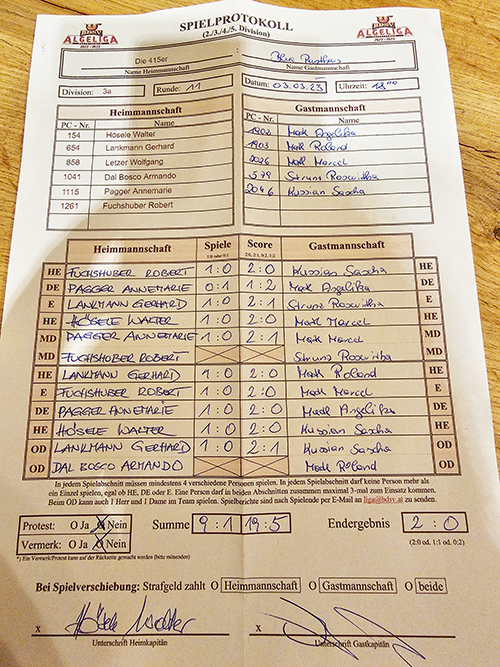 ALGELIGA
2022 - 2023
SPIELPROTOKOLL
(2./3./4./5. Division)
ALGELIGA
2022 - 2023
Die 415er
Name Heimmannschaft Name Gastmannschaft
Division: 3a Runde: 11 Datum: 03.03.23 Uhrzeit: 18⁰⁰
Heimmannschaft Gastmannschaft
PC - Nr. Name PC - Nr. Name
154 Hösele Walter 1902 Madl Angelika
654 Lankmann Gerhard 1903 Madl Roland
858 Letzer Wolfgang 2026 Madl Marcel
1041 Dal Bosco Armando 579 Strunz Roswitha
1115 Pagger Annemarie 2046 Kussian Sascha
1261 Fuchshuber Robert
Heimmannschaft Spiele Score Gastmannschaft
1:0 oder 0:1 2:0, 2:1, 0:2, 1:2
HE FUCHSHUBER ROBERT 1:0 2:0 Kussian Sascha HE
DE PAGGER ANNEMARIE 0:1 1:2 Madl Angelika DE
E LANKMANN GERHARD 1:0 2:1 Strunz Roswitha E
HE HÖSELE WALTER 1:0 2:0 Madl Marcel HE
MD PAGGER ANNEMARIE 1:0 2:1 Madl Marcel MD
MD FUCHSHUBER ROBERT Strunz Roswitha MD
HE LANKMANN GERHARD 1:0 2:0 Madl Roland HE
E FUCHSHUBER ROBERT 1:0 2:0 Madl Marcel E
DE PAGGER ANNEMARIE 1:0 2:0 Madl Angelika DE
HE HÖSELE WALTER 1:0 2:0 Kussian Sascha HE
OD LANKMANN GERHARD 1:0 2:1 Kussian Sascha OD
OD DAL BOSCO ARMANDO Madl Roland OD
In jedem Spielabschnitt müssen mindestens 4 verschiedene Personen spielen. In jedem Spielabschnitt darf keine Person mehr als
ein Einzel spielen, egal ob HE, DE oder E. Eine Person darf in beiden Abschnitten zusammen maximal 3-mal zum Einsatz kommen.
Beim OD kann auch 1 Herr und 1 Dame im Team spielen. Spielberichte sind nach Spielende per E-Mail an liga@bdsv.at zu senden.
Protest: O Ja O Nein Summe 9:1 19:5 Endergebnis 2:0
Vermerk: O Ja O Nein (2:0 od. 1:1 od. 0:2)
*) Ein Vermerk/Protest kann auf der Rückseite gemacht werden (bitte mitsenden)
Bei Spielverschiebung: Strafgeld zahlt O Heimmannschaft O Gastmannschaft O beide
x Hösele Walter x
Unterschrift Heimkapitän Unterschrift Gastkapitän